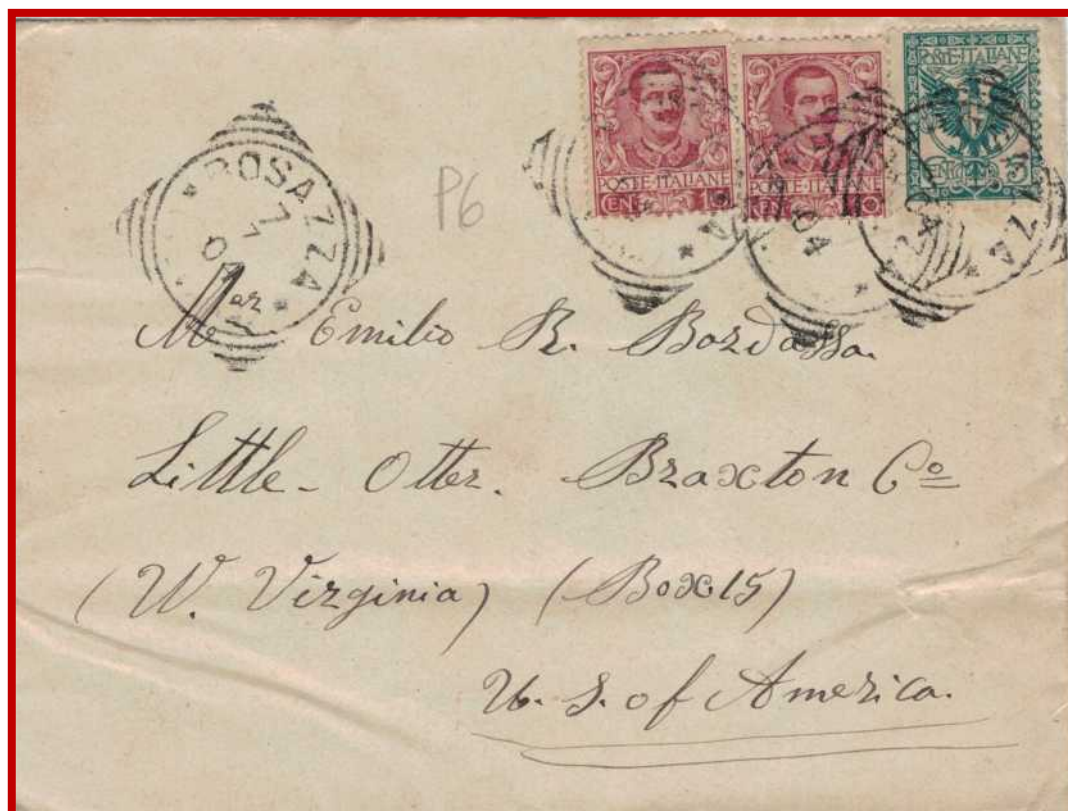 POSTE·ITALIANE
POSTE·ITALIANE
POSTE·ITALIANE
CENT 5
ROSAZZA
P6
04
Mr Emilio R.
Little - Otter. Braxton Co
(W. Virginia) (Box 15)
U. S. of America.